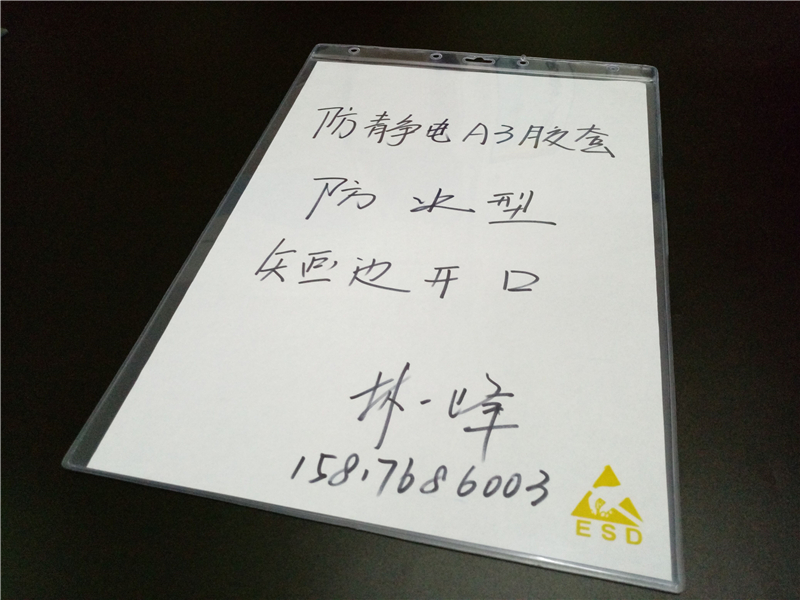 防静电A3胶套
防水型
短边开口
林一峰
15817686003
ESD